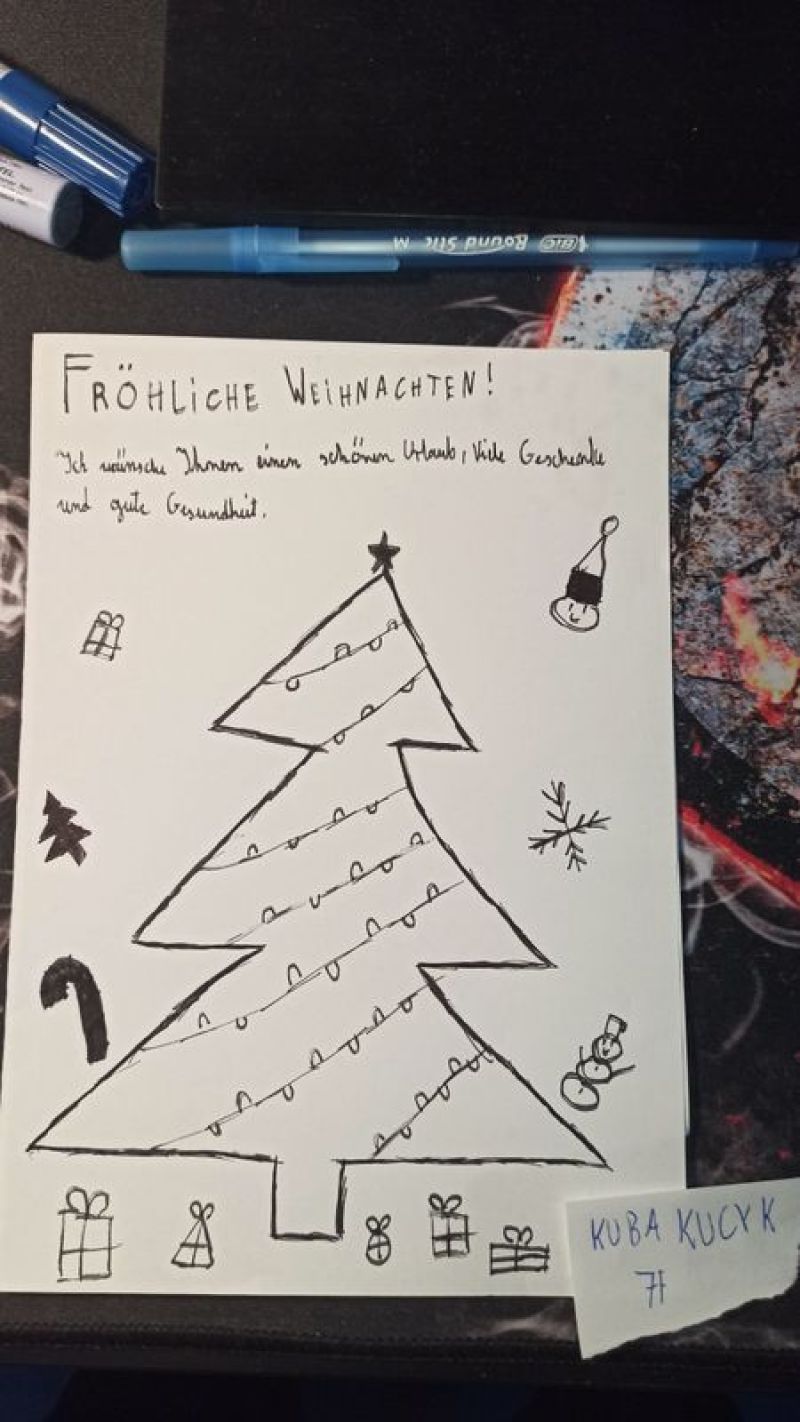 BIC Round Stic M
FRÖHLICHE WEIHNACHTEN!
Ich wünsche Ihnen einen schönen Urlaub, Viele Geschenke
und gute Gesundheit.
KUBA KUCYK
7f